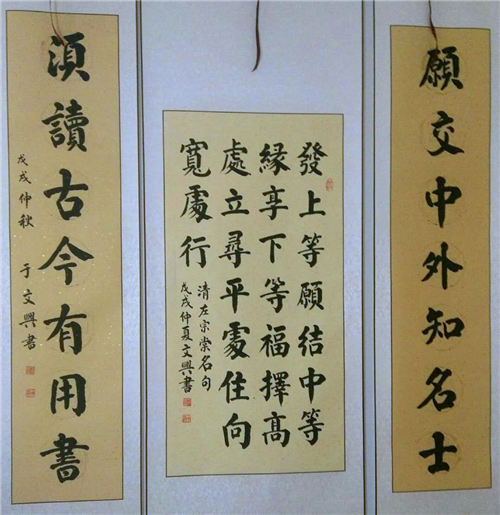 願交中外知名士
發上等願結中等
縁享下等福擇髙
處立尋平處住向
寬處行
清左宗棠名句
戊戌仲夏文興書
湏讀古今有用書
戊戌仲秋 于文興書